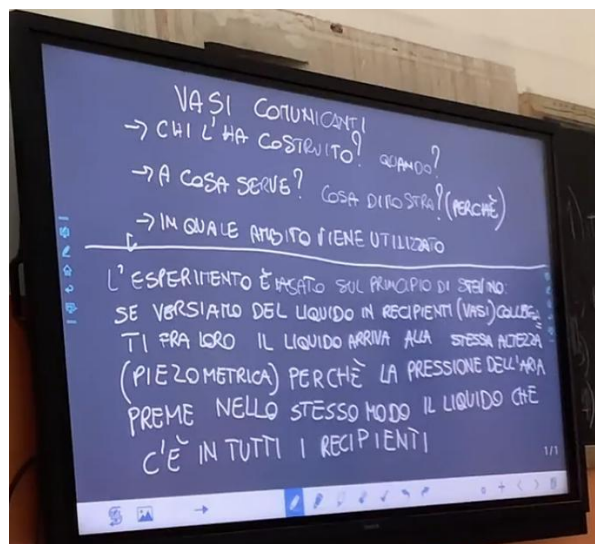 VASI COMUNICANTI
→ CHI L'HA COSTRUITO? QUANDO?
→ A COSA SERVE? COSA DIMOSTRA? (PERCHÈ)
→ IN QUALE AMBITO VIENE UTILIZZATO
L'ESPERIMENTO È BASATO SUL PRINCIPIO DI STEVINO:
SE VERSIAMO DEL LIQUIDO IN RECIPIENTI (VASI) COLLEGA
TI FRA LORO IL LIQUIDO ARRIVA ALLA STESSA ALTEZZA
(PIEZOMETRICA) PERCHÈ LA PRESSIONE DELL'ARIA
PREME NELLO STESSO MODO IL LIQUIDO CHE
C'È IN TUTTI I RECIPIENTI
1/1